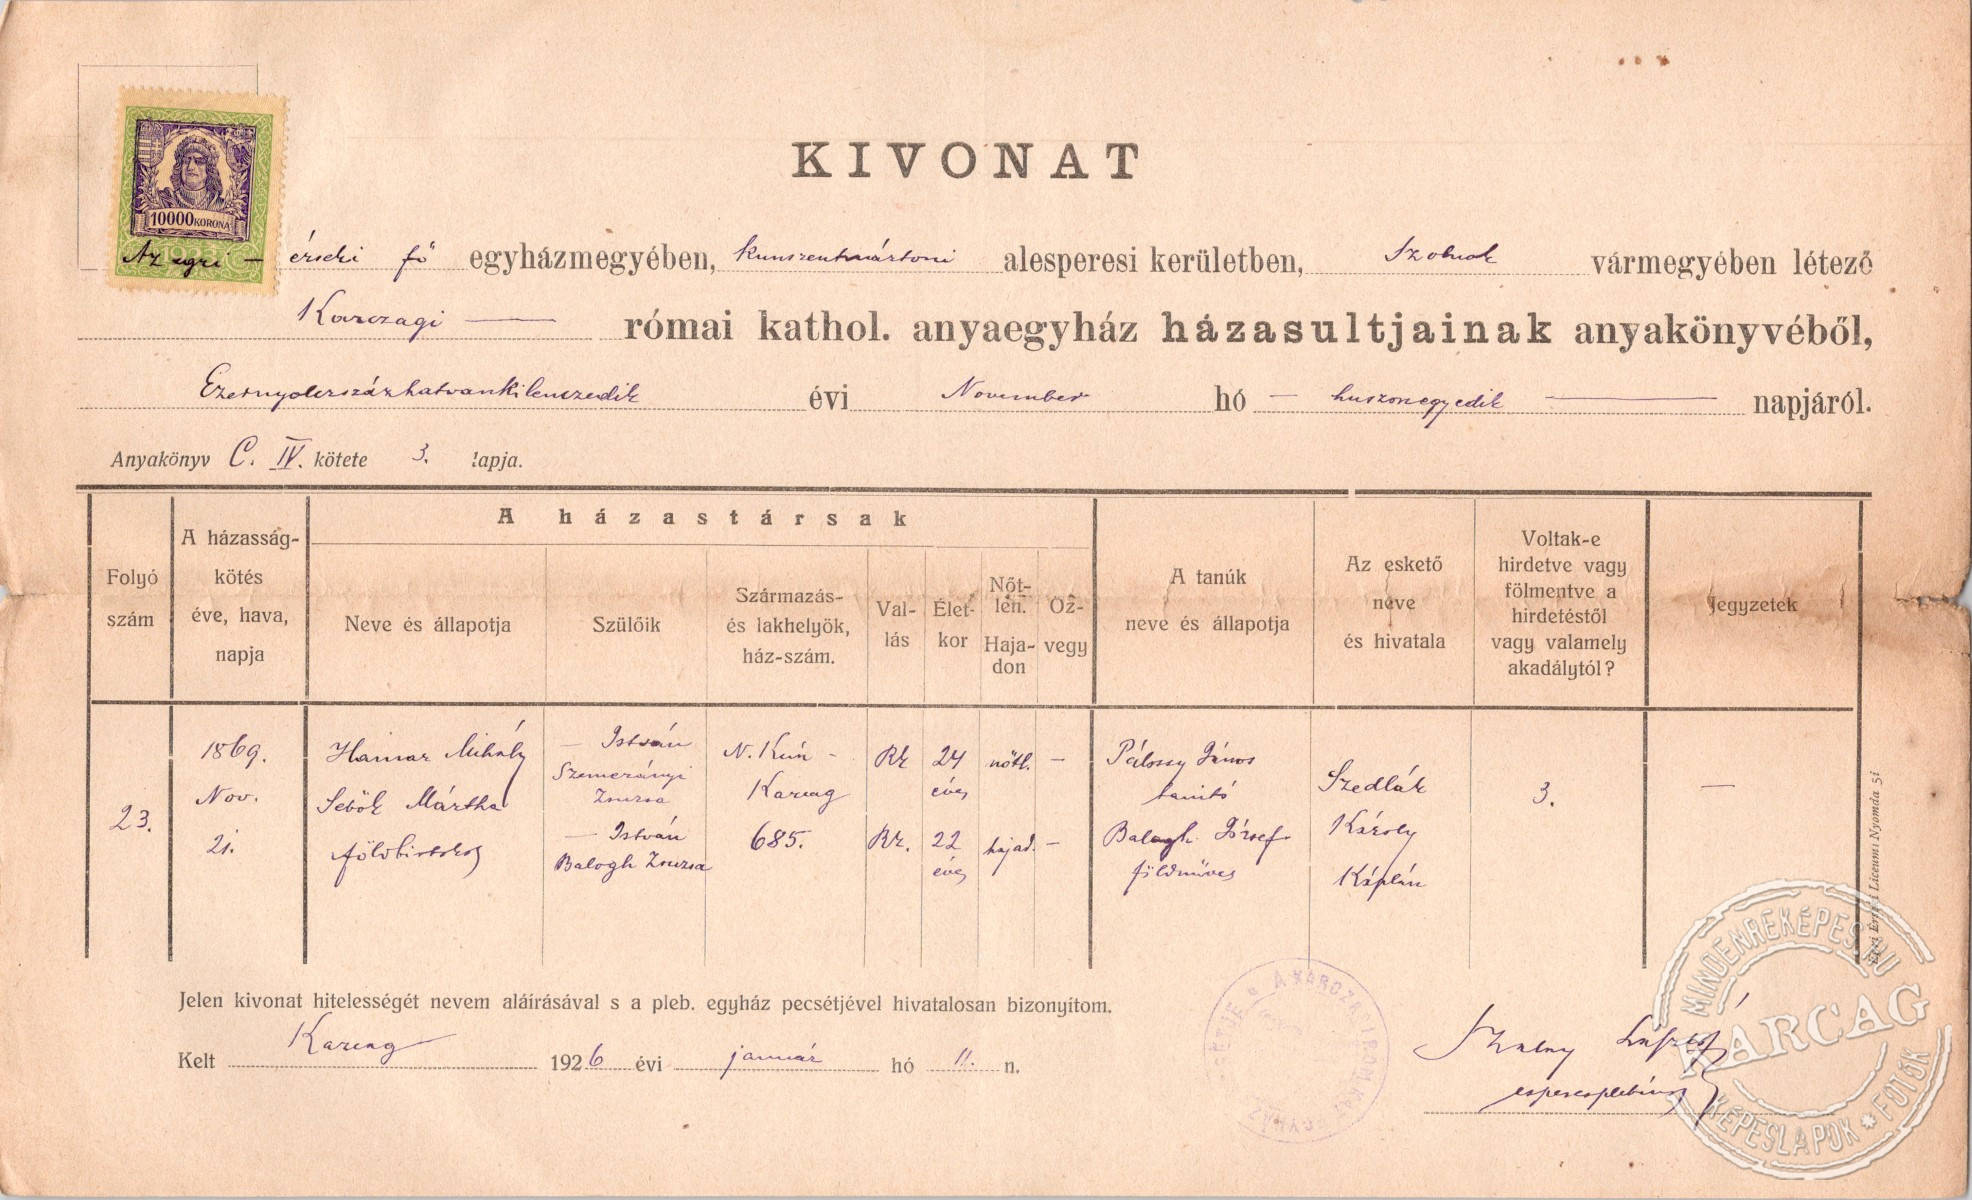 KIVONAT
10000 KORONA
Az egri — érseki fő egyházmegyében, kunszentmártoni alesperesi kerületben, Szolnok vármegyében létező
Karczagi — római kathol. anyaegyház házasultjainak anyakönyvéből,
Ezernyolcszázhatvankilenczedik évi November hó — huszonegyedik — napjáról.
Anyakönyv C. IV. kötete 3. lapja.
A házastársak
Folyó szám
A házasság-kötés éve, hava, napja
Neve és állapotja
Szülőik
Származás- és lakhelyök, ház-szám.
Val-lás
Élet-kor
Nőt-len. Haja-don
Öz-vegy
A tanúk neve és állapotja
Az eskető neve és hivatala
Voltak-e hirdetve vagy fölmentve a hirdetéstől vagy valamely akadálytól?
Jegyzetek
23.
1869. Nov. 21.
Hamar Mihály
Sebők Mártha
földbirtokos
— István
Szemerányi
Zsuzsa
— István
Balogh Zsuzsa
N. Kún -
Karcag
685.
Rk
Rk.
24 éves
22 éves
nőtl.
hajad.
—
—
Pálossy János
tanító
Balogh József
földműves
Szedlák
Károly
Káplán
3.
—
Egri Érseki Liceumi Nyomda 5i
Jelen kivonat hitelességét nevem aláírásával s a pleb. egyház pecsétjével hivatalosan bizonyítom.
Kelt Karcag 1926 évi január hó 11. n.
A KARCZAGI ROM. KAT. EGYHÁZ
esperesplébános
MINDENREKÉPES.HU
KARCAG
KÉPESLAPOK * FOTÓK